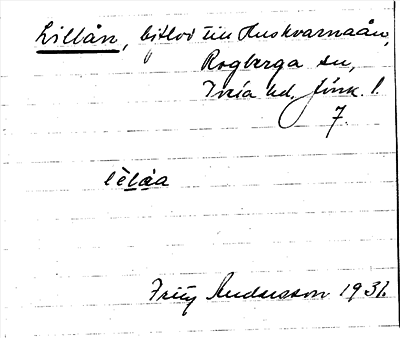 Lillån, biflod till Huskvarnaån,
Rogberga sn,
Tveta hd, Jönk. l.
7.
Fritz Andersson 1931.